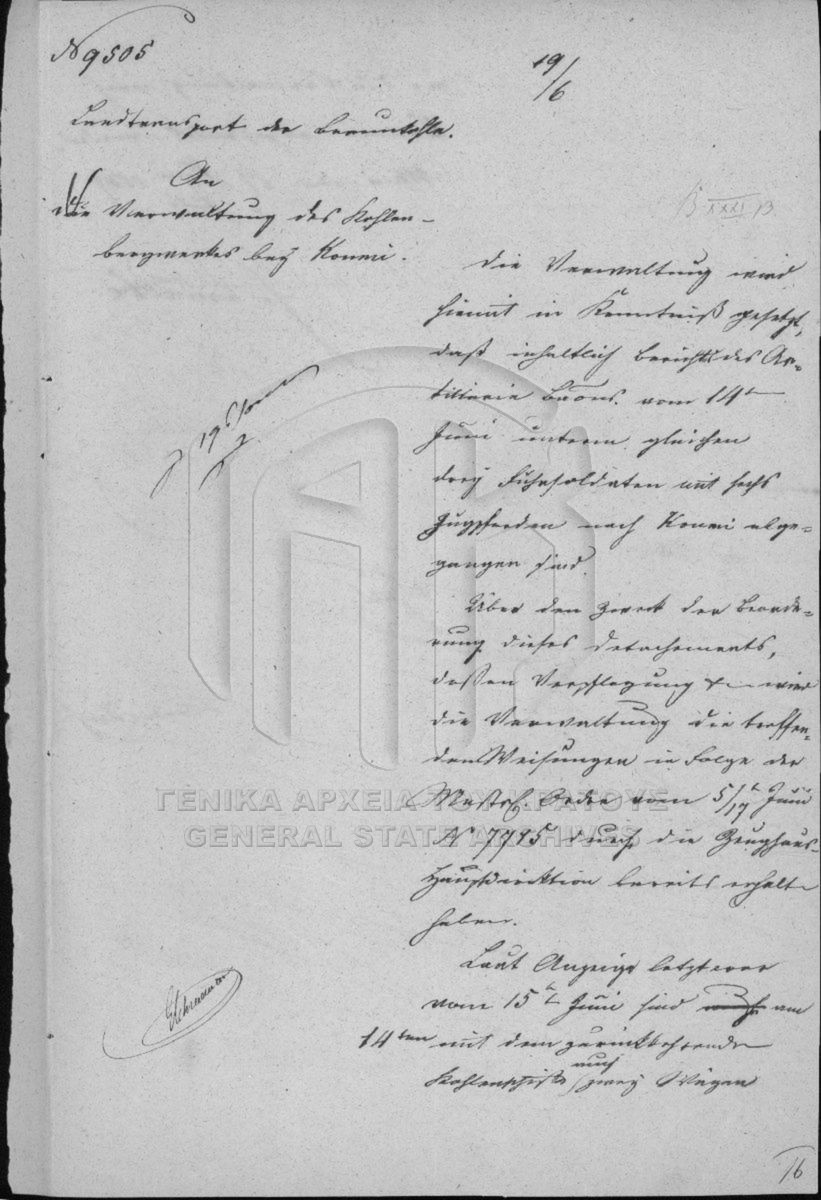 N 9505
19/6
Landtransport der Braunkohle.
An
die Verwaltung des Kohlen-
bergwerkes bey Koumi.
B XXXI 13
Die Verwaltung wird
hiemit in Kenntniß gesetzt,
daß inhaltlich Berichts des Ar-
tillerie Baons. vom 14t
Juni unterm gleichen
drey Fuhrsoldaten mit sechs
Zugpferden nach Koumi abge-
gangen sind.
Über den Zweck der Beorde-
rung dieses Detachements,
deßen Verpflegung wird
die Verwaltung die treffen-
den Weisungen in Folge der
Order vom 5/17t Juni
No 7795 durch die Zeughaus-
Hauptdirektion bereits erhalten
haben.
Laut Anzeige letzterer
vom 15t Juni sind am
14ten mit dem zurückkehrenden
Kohlenschiffe auch zwey Wägen
ΓΕΝΙΚΑ ΑΡΧΕΙΑ ΤΟΥ ΚΡΑΤΟΥΣ
GENERAL STATE ARCHIVES
16